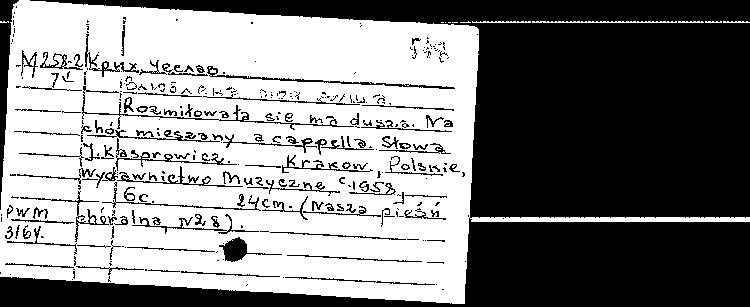 М258-2 Крих, Чеслав.
7
Rozmiłowała się ma dusza. Na
chór mieszany a cappella. Słowa
J. Kasprowicz. Krakow, Polskie,
wydawnictwo Muzyczne, c1958,
6с. 24cm. (Nasza pieśń
PWM chóralna, N28).
3164.